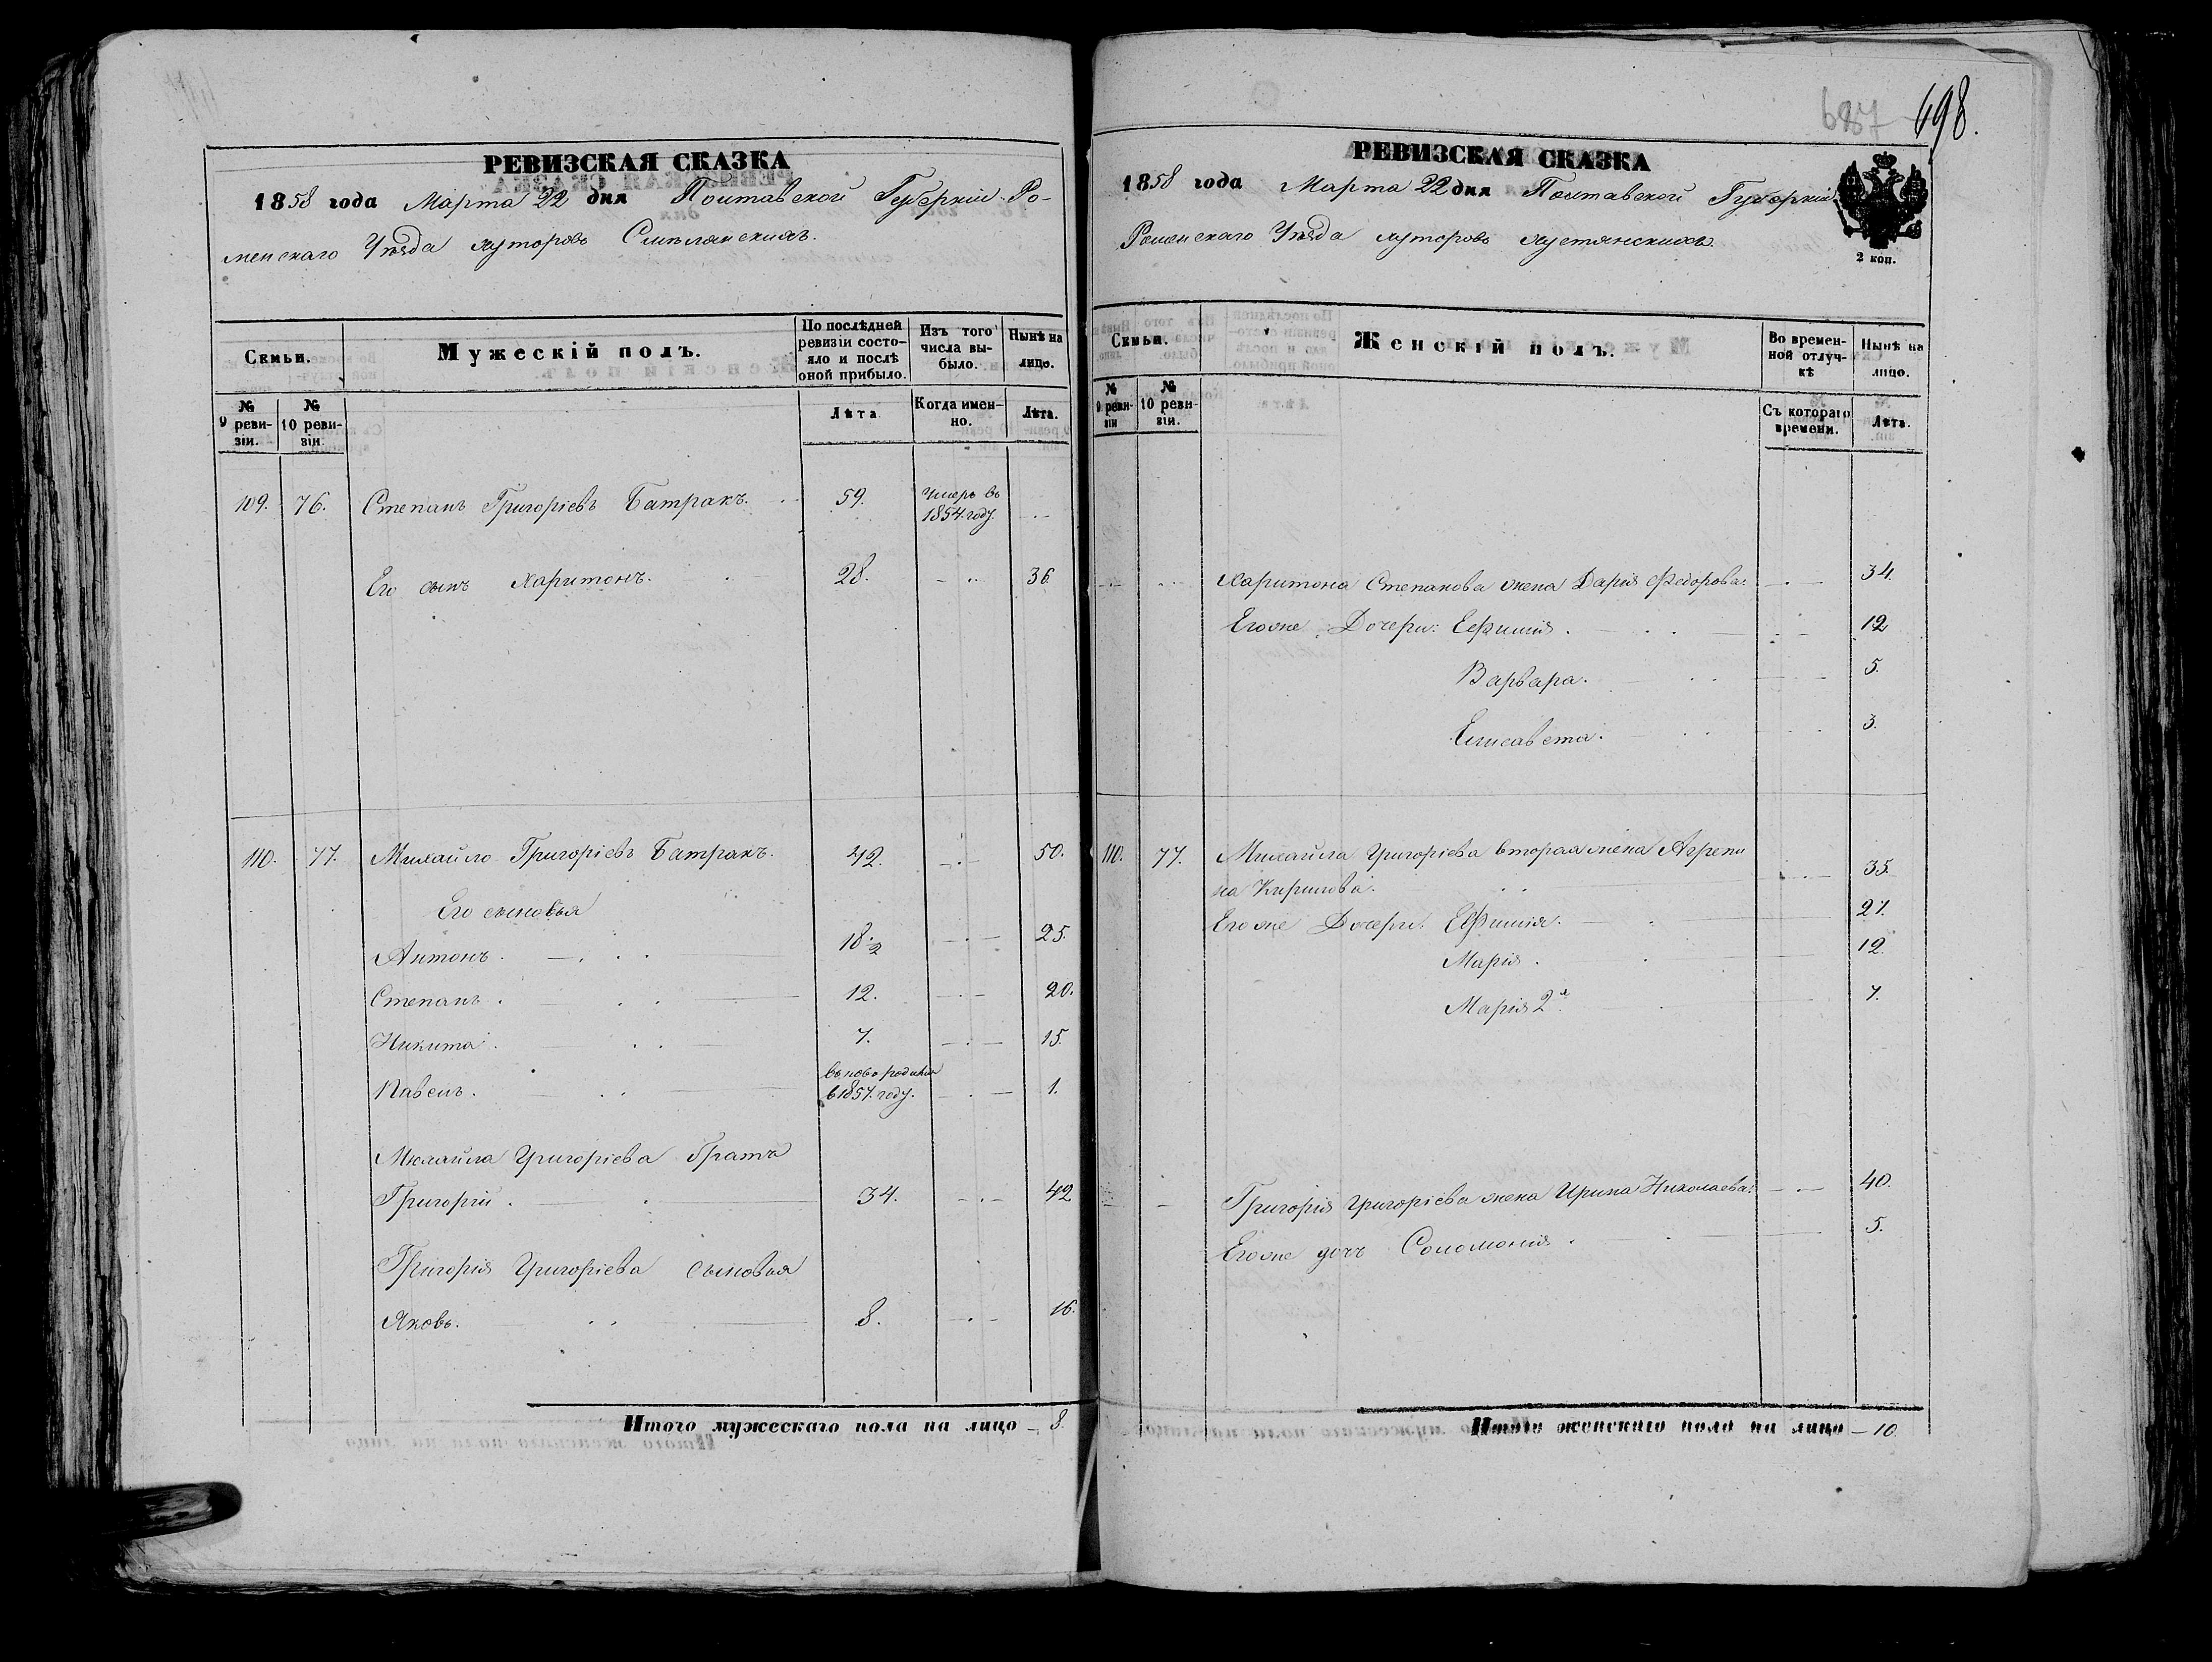 687 698.
РЕВИЗСКАЯ СКАЗКА
1858 года Марта 22 дня Полтавской Губерніи Ро-
менскаго Уѣзда хуторовъ
Семьи.
Мужескій полъ.
По послѣдней ревизіи состо-
яло и послѣ
оной прибыло.
Изъ того
числа вы-
было.
Нынѣ на
лицо.
№ 9 реви-
зіи.
№ 10 реви-
зіи.
Лѣта
Когда имен-
но.
Лѣта.
109. 76. Степанъ Григоріевъ Батракъ. 59. Умеръ въ
1854 году.
Его сынъ Харитонъ. 28. 36
110. 77. Михайло Григоріевъ Батракъ. 42. 50.
Его сыновья
Антонъ. 18 1/2 25.
Степанъ. 12. 20.
Никита. 7. 15.
Павелъ. вьново родился
в 1857. году. 1.
Михайла Григоріева братъ
Григорій. 34. 42
Григорія Григоріева сыновья
Яковъ. 8. 16.
Итого мужескаго пола на лицо – 8.
РЕВИЗСКАЯ СКАЗКА
1858 года Марта 22 дня Полтавской Губерніи
Роменскаго Уѣзда хуторовъ
2 коп.
Семьи.
Женскій полъ.
Во времен-
ной отлуч-
кѣ
Нынѣ на
лицо.
№ 9 реви-
зіи
№ 10 реви-
зіи.
Съ котораго
времени.
Лѣта.
Харитона Степанова жена Дарія Федорова. 34.
Егоже Дочери: Ефимія. 12
Варвара. 5.
Елисавета. 3.
110. 77. Михайла Григоріева вторая жена Агрепи
на Кирилова. 35.
Егоже Дочери. Ефимія. 21.
Марія. 12.
Марія 2я. 7.
Григорія Григоріева жена Ирина Николаева. 40.
Егоже дочь Соломонія. 5.
Итого женскаго пола на лицо – 10